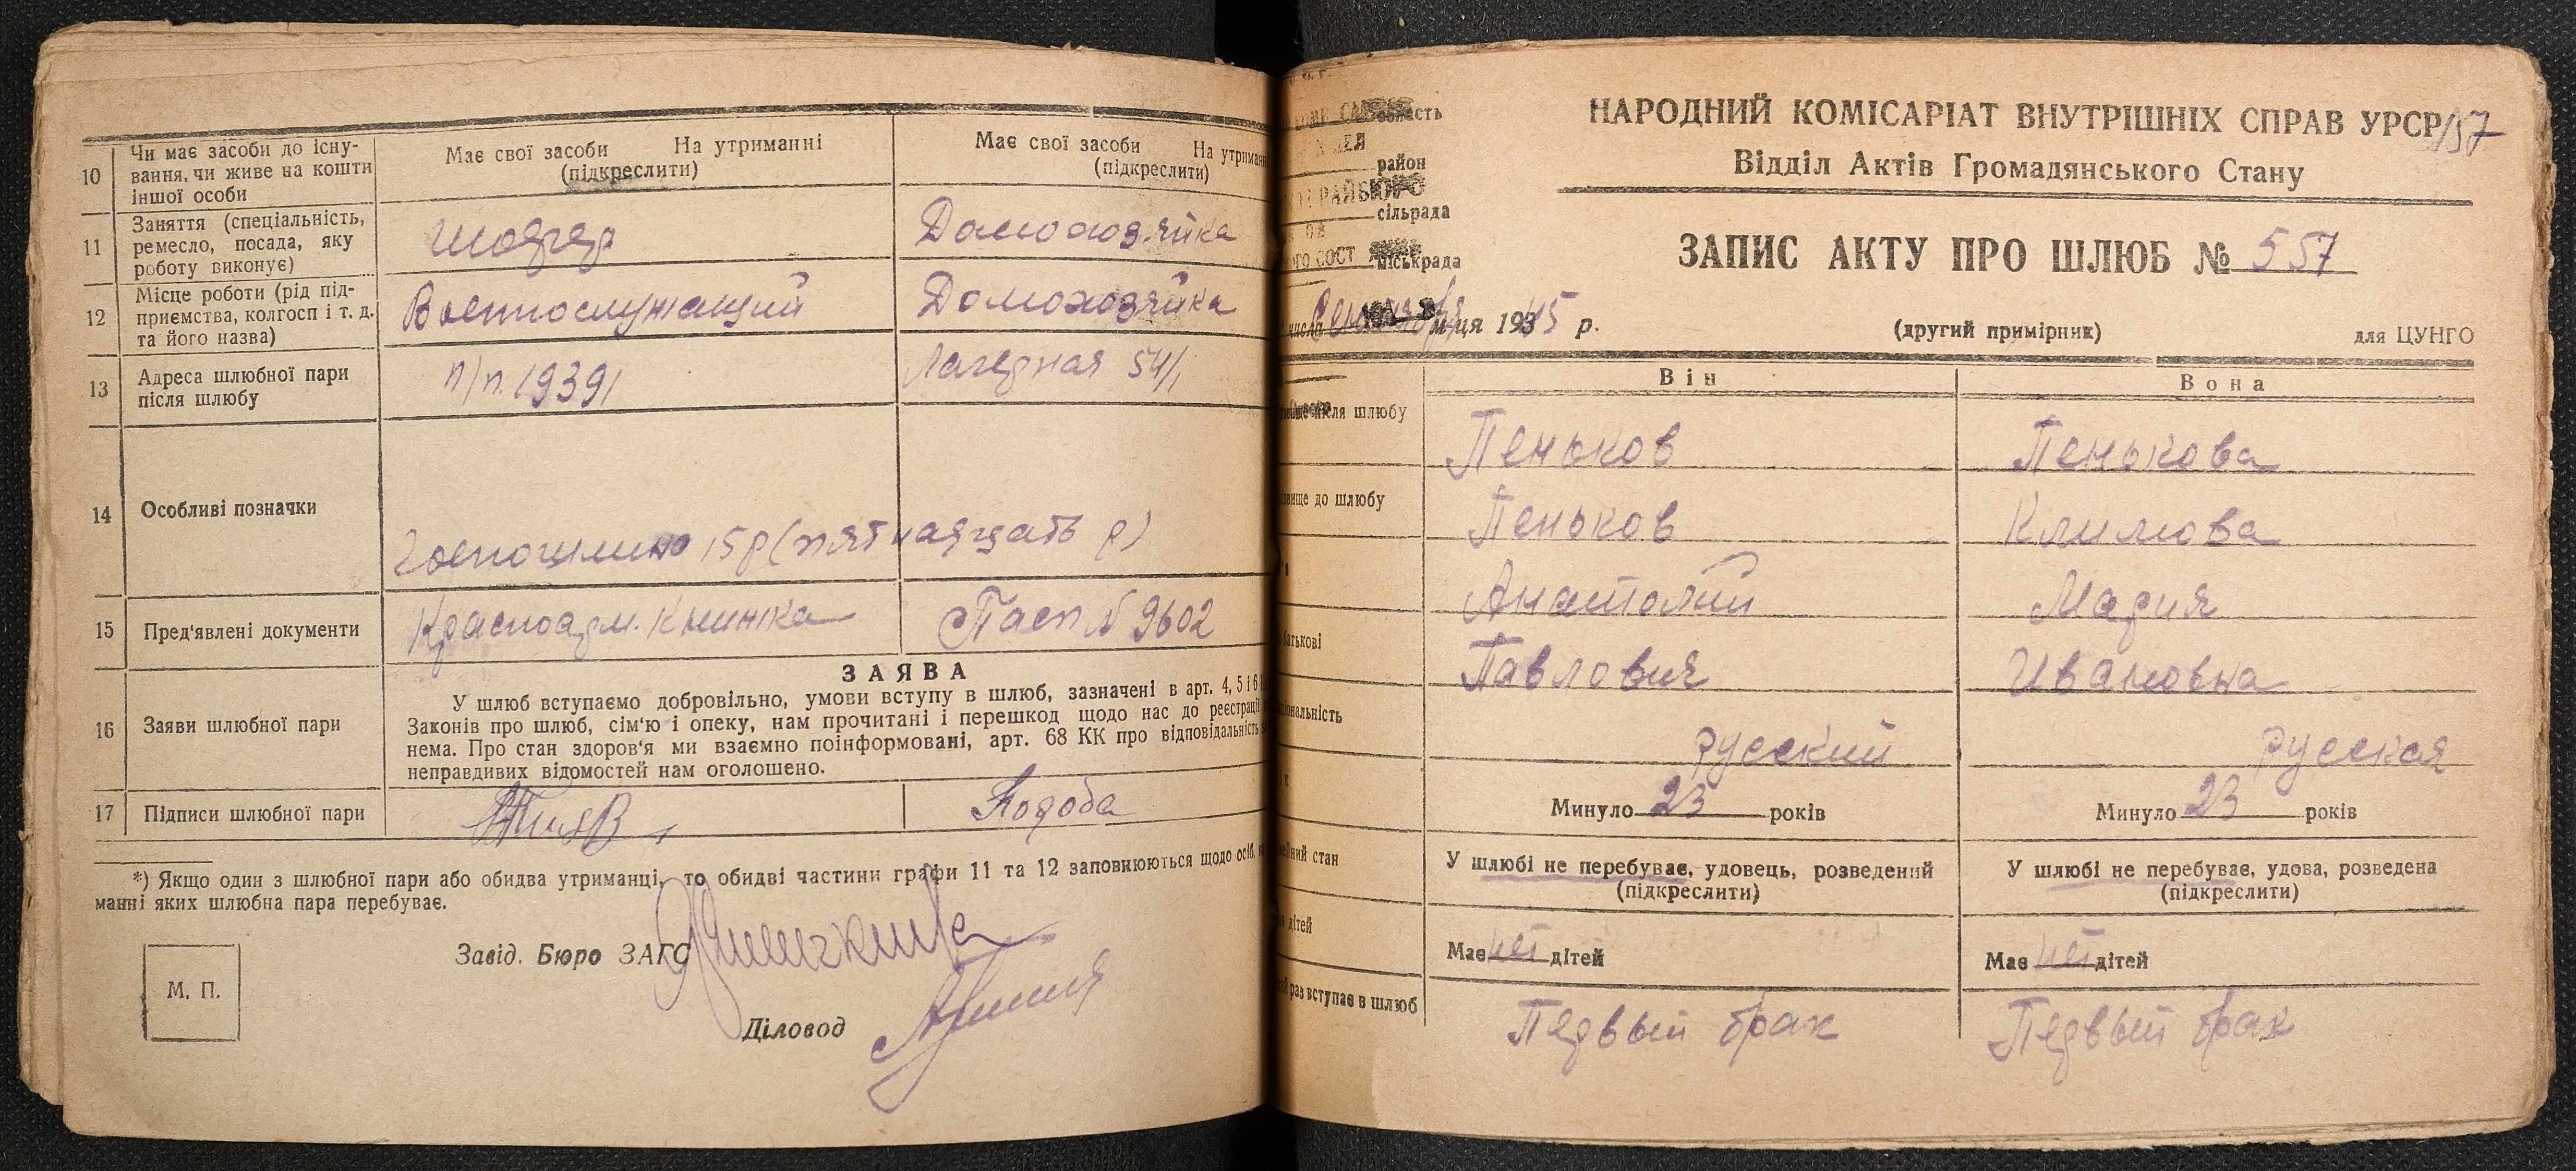 10
Чи має засоби до існу-
вання, чи живе на кошти
іншої особи
Має свої засоби На утриманні
(підкреслити)
Має свої засоби На утриманн
(підкреслити)
11
Заняття (спеціальність,
ремесло, посада, яку
роботу виконує)
шофер
Домохозяйка
12
Місце роботи (рід під-
приємства, колгосп і т. д.
та його назва)
Военнослужащий
Домохозяйка
13
Адреса шлюбної пари
після шлюбу
п/п. 19391
Лагерная 54/1
14
Особливі позначки
Госпошлина 15 р (пятнадцать р)
15
Пред'явлені документи
Красноарм. Книжка
Пасп № 9602
16
Заяви шлюбної пари
ЗАЯВА
У шлюб вступаємо добровільно, умови вступу в шлюб, зазначені в арт. 4, 5 і 6
Законів про шлюб, сім'ю і опеку, нам прочитані і перешкод щодо нас до реєстрації
нема. Про стан здоров'я ми взаємно поінформовані, арт. 68 КК про відповідальність
неправдивих відомостей нам оголошено.
17
Підписи шлюбної пари
*) Якщо один з шлюбної пари або обидва утриманці, то обидві частини графи 11 та 12 заповнюються щодо осіб,
манні яких шлюбна пара перебуває.
М. П.
Завід. Бюро ЗАГС
Діловод
область
район
РАЙБЮРО
сільрада
міськрада
числа Сентября м-ця 1945 р.
НАРОДНИЙ КОМІСАРІАТ ВНУТРІШНІХ СПРАВ УРСР
157
Відділ Актів Громадянського Стану
ЗАПИС АКТУ ПРО ШЛЮБ № 557
(другий примірник)
для ЦУНГО
Він
Вона
після шлюбу
Пеньков
Пенькова
до шлюбу
Пеньков
Климова
Анатолий
Мария
батькові
Павлович
Ивановна
русский
русская
Минуло 23 років
Минуло 23 років
стан
У шлюбі не перебуває, удовець, розведений
(підкреслити)
У шлюбі не перебуває, удова, розведена
(підкреслити)
дітей
Має нет дітей
Має нет дітей
раз вступає в шлюб
Первый брак
Первый брак